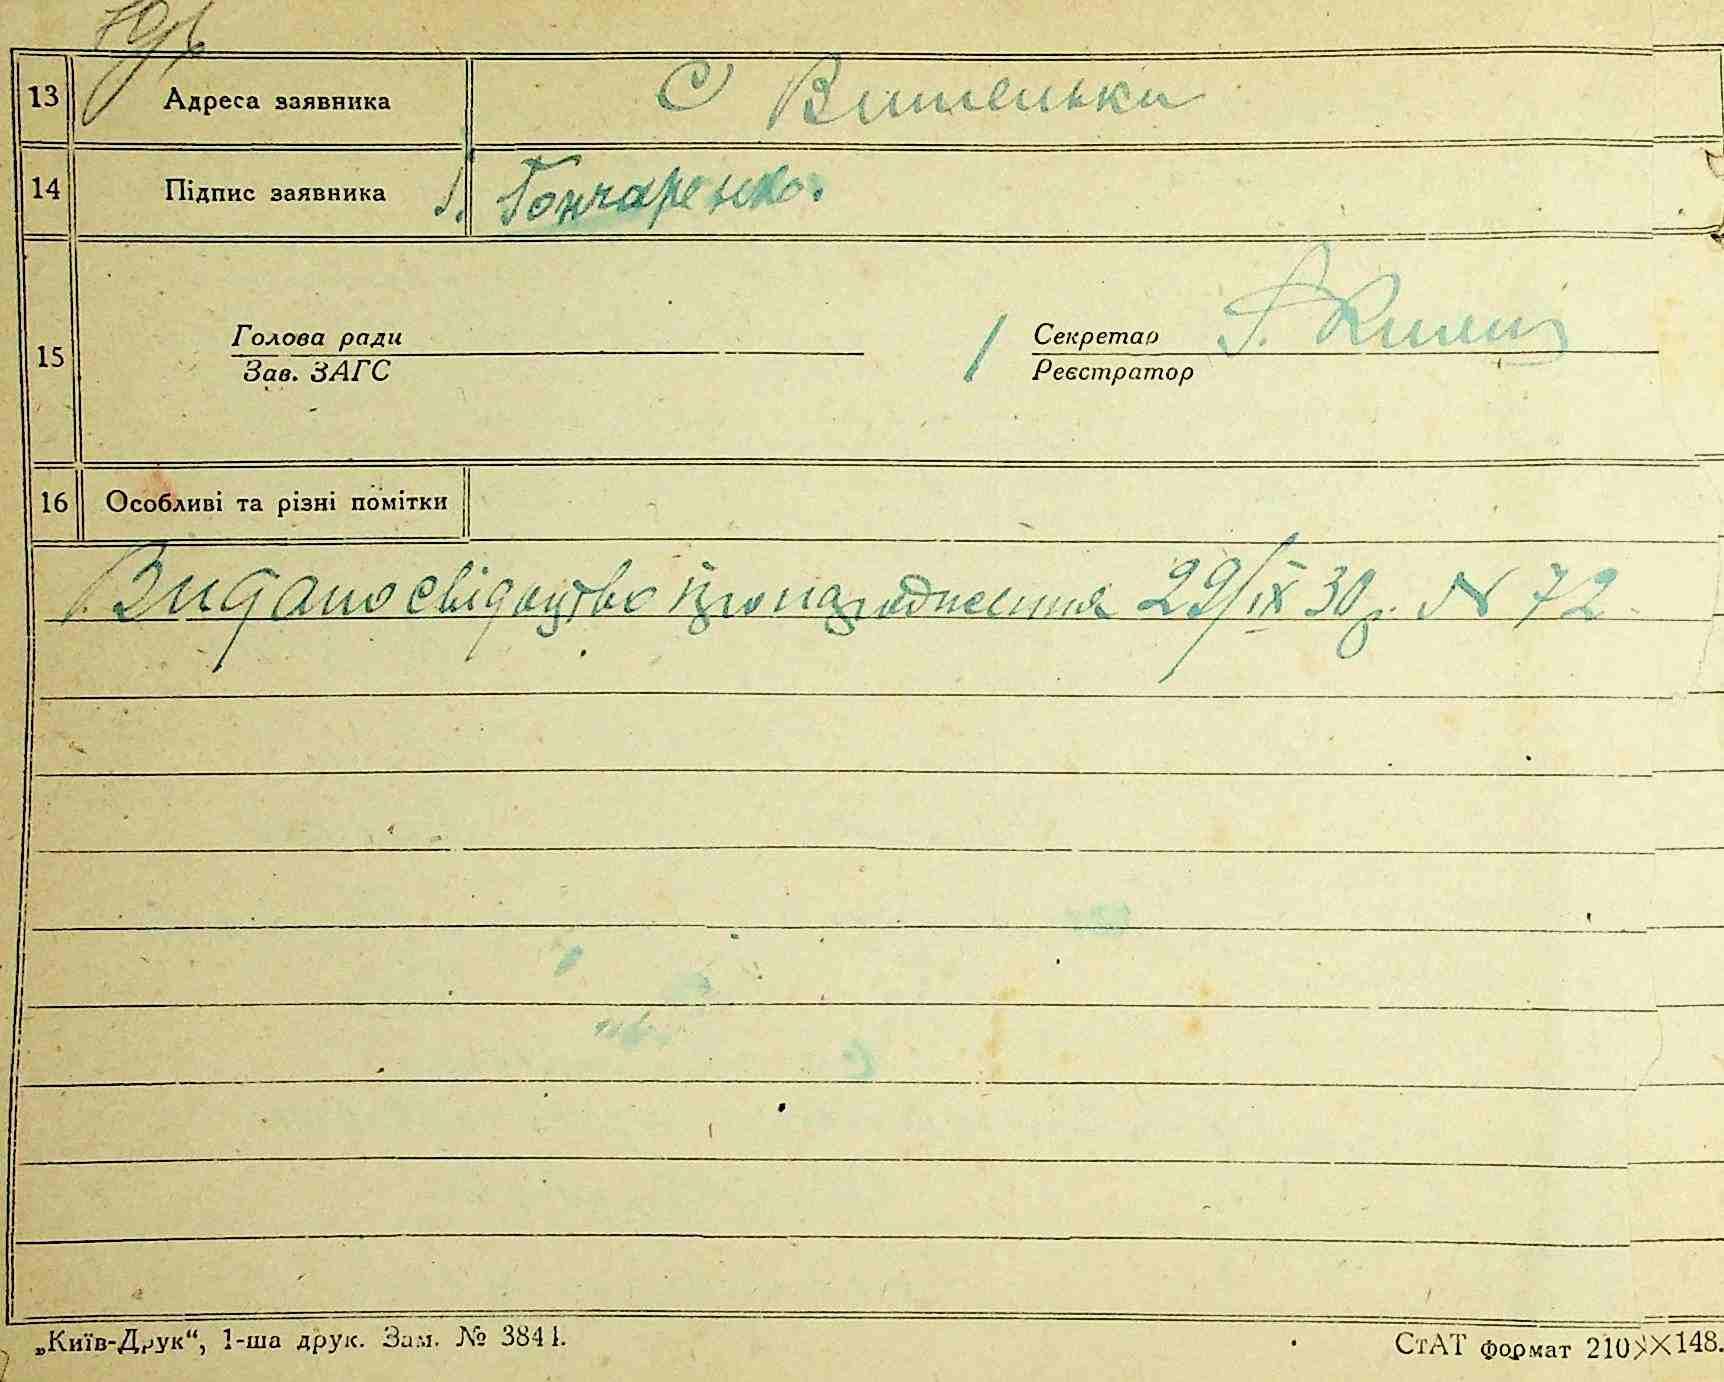 13 Адреса заявника С Вишеньки
14 Підпис заявника Гончаренко.
15 Голова ради Секретар
Зав. ЗАГС Реєстратор
16 Особливі та різні помітки
Видано свідоцтво про народження 29/ІХ 30р. № 72
„Київ-Друк“, 1-ша друк. Зам. № 3841. СтАТ формат 210××148.